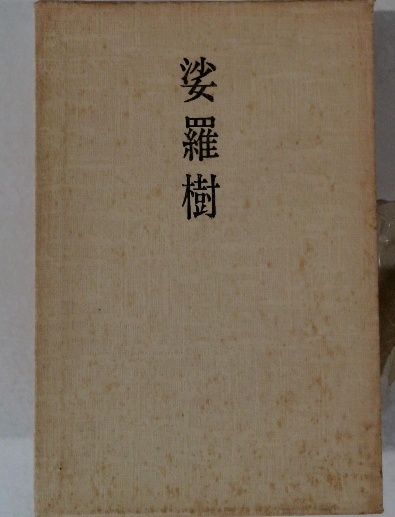 娑羅樹